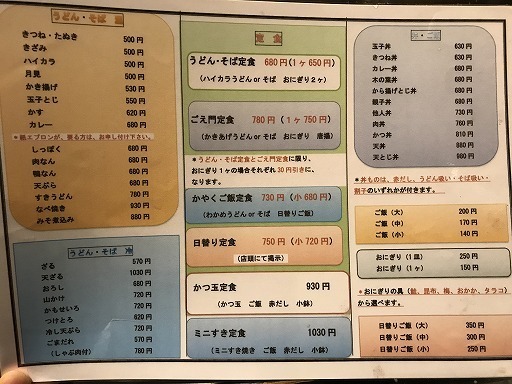 うどん・そば 温
きつね・たぬき 500円
きざみ 500円
ハイカラ 500円
月見 500円
かき揚げ 530円
玉子とじ 550円
かす 620円
カレー 680円
＊紙エプロンが、要る方は、お申し付け下さい。
しっぽく 680円
肉なん 680円
鴨なん 680円
天ぷら 680円
すきうどん 780円
なべ焼き 930円
みそ煮込み 880円
うどん・そば 冷
ざる 570円
天ざる 1030円
おろし 680円
山かけ 720円
かもせいろ 720円
つけとろ 620円
冷し天ぷら 720円
ごまだれ 570円
（しゃぶ肉付） 780円
定食
うどん・そば定食 680円(1ヶ650円)
（ハイカラうどん or そば おにぎり2ヶ）
ごえ門定食 780円 (1ヶ750円)
（かきあげうどん or そば おにぎり 唐揚）
＊うどん・そば定食とごえ門定食に限り、
おにぎり1ヶの場合それぞれ30円引きに、
なります。
かやくご飯定食 730円 (小 680円)
（わかめうどん or そば 日替りご飯）
日替り定食 750円 (小 720円)
（店頭にて掲示）
かつ玉定食 930円
（かつ玉 ご飯 赤だし 小鉢）
ミニすき定食 1030円
（ミニすき焼き ご飯 赤だし 小鉢）
丼・ご飯
玉子丼 630円
きつね丼 630円
カレー丼 680円
木の葉丼 680円
から揚げとじ丼 680円
親子丼 680円
他人丼 730円
肉丼 760円
かつ丼 830円
天丼 880円
天とじ丼 980円
＊丼ものは、赤だし、うどん吸い・そば吸い・
割子のいずれかが付きます。
ご飯（大） 200円
ご飯（中） 170円
ご飯（小） 140円
おにぎり（1皿） 250円
おにぎり（1ヶ） 150円
＊おにぎりの具（鮭、昆布、梅、おかか、タラコ）
から選べます。
日替りご飯（大） 350円
日替りご飯（中） 300円
日替りご飯（小） 250円